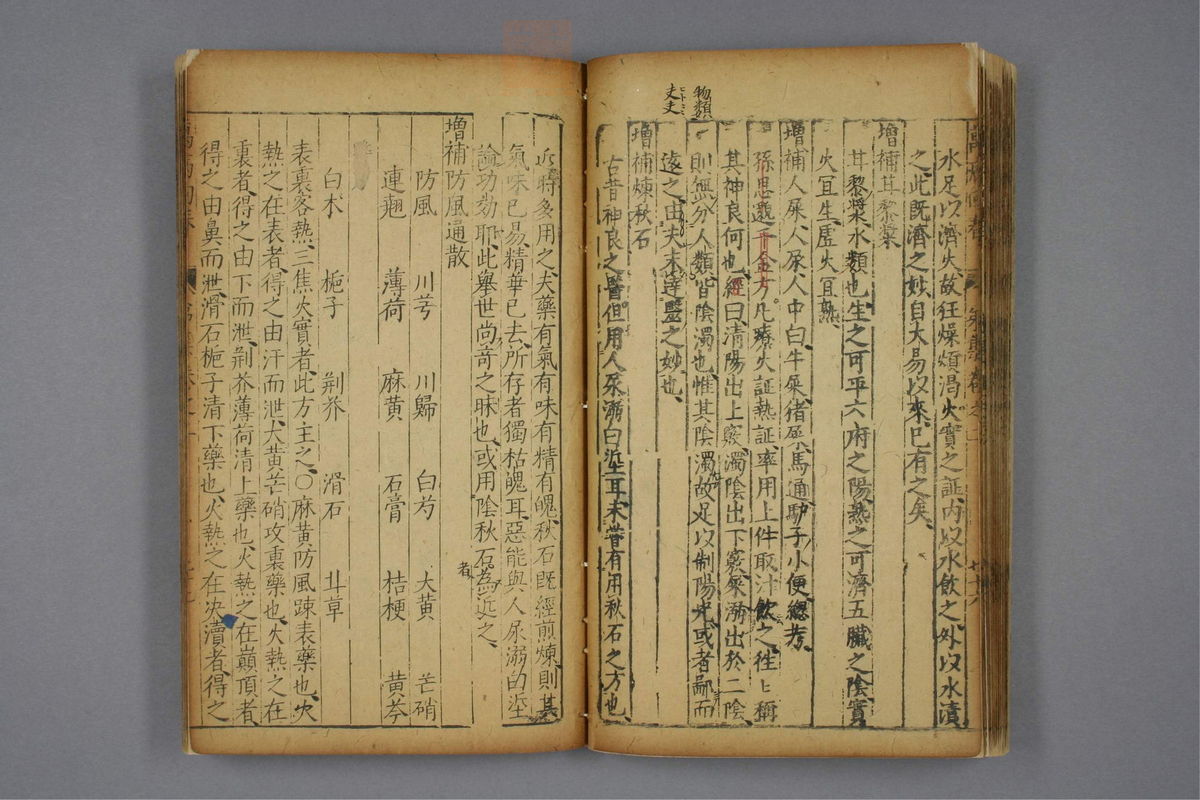 水足以濟火故狂燥煩渴火實之証內以水飲之外以水漬
之此既濟之妙自大易以來已有之矣
增補苴藜藥
苴藜漿水類也生之可平六府之陽熱之可濟五臟之陰實
火宜生虛火宜熟
增補人屎人尿人中白牛屎猪屎馬通馿子小便總考
孫思邈千金方凡療火証熱証率用上件取汁飲之徃〻稱
其神良何也經曰清陽出上竅濁陰出下竅屎溺出於二陰
則無分人類物類皆陰濁也惟其陰濁故足以制陽光或者鄙而
遠之由夫未達醫之妙也
增補煉秋石
古昔神良之醫但用人尿溺白垽耳未嘗有用秋石之方也
近時多用之夫藥有氣有味有精有魄秋石既經煎煉則其
氣味已易精華已去所存者獨枯魄耳惡能與人尿溺的垽
論功効耶此舉世尚奇之昧也或用陰秋石者為近之
增補防風通散
防風 川芎 川歸 白芍 大黃 芒硝
連翹 薄荷 麻黃 石膏 桔梗 黃芩
白朮 梔子 荆芥 滑石 甘草
表裏客熱三焦火實者此方主之○麻黃防風踈表藥也火
熱之在表者得之由汗而泄大黃芒硝攻裏藥也火熱之在
裏者得之由下而泄荆芥薄荷清上藥也火熱之在巔頂者
得之由鼻而泄滑石梔子清下藥也火熱之在决瀆者得之